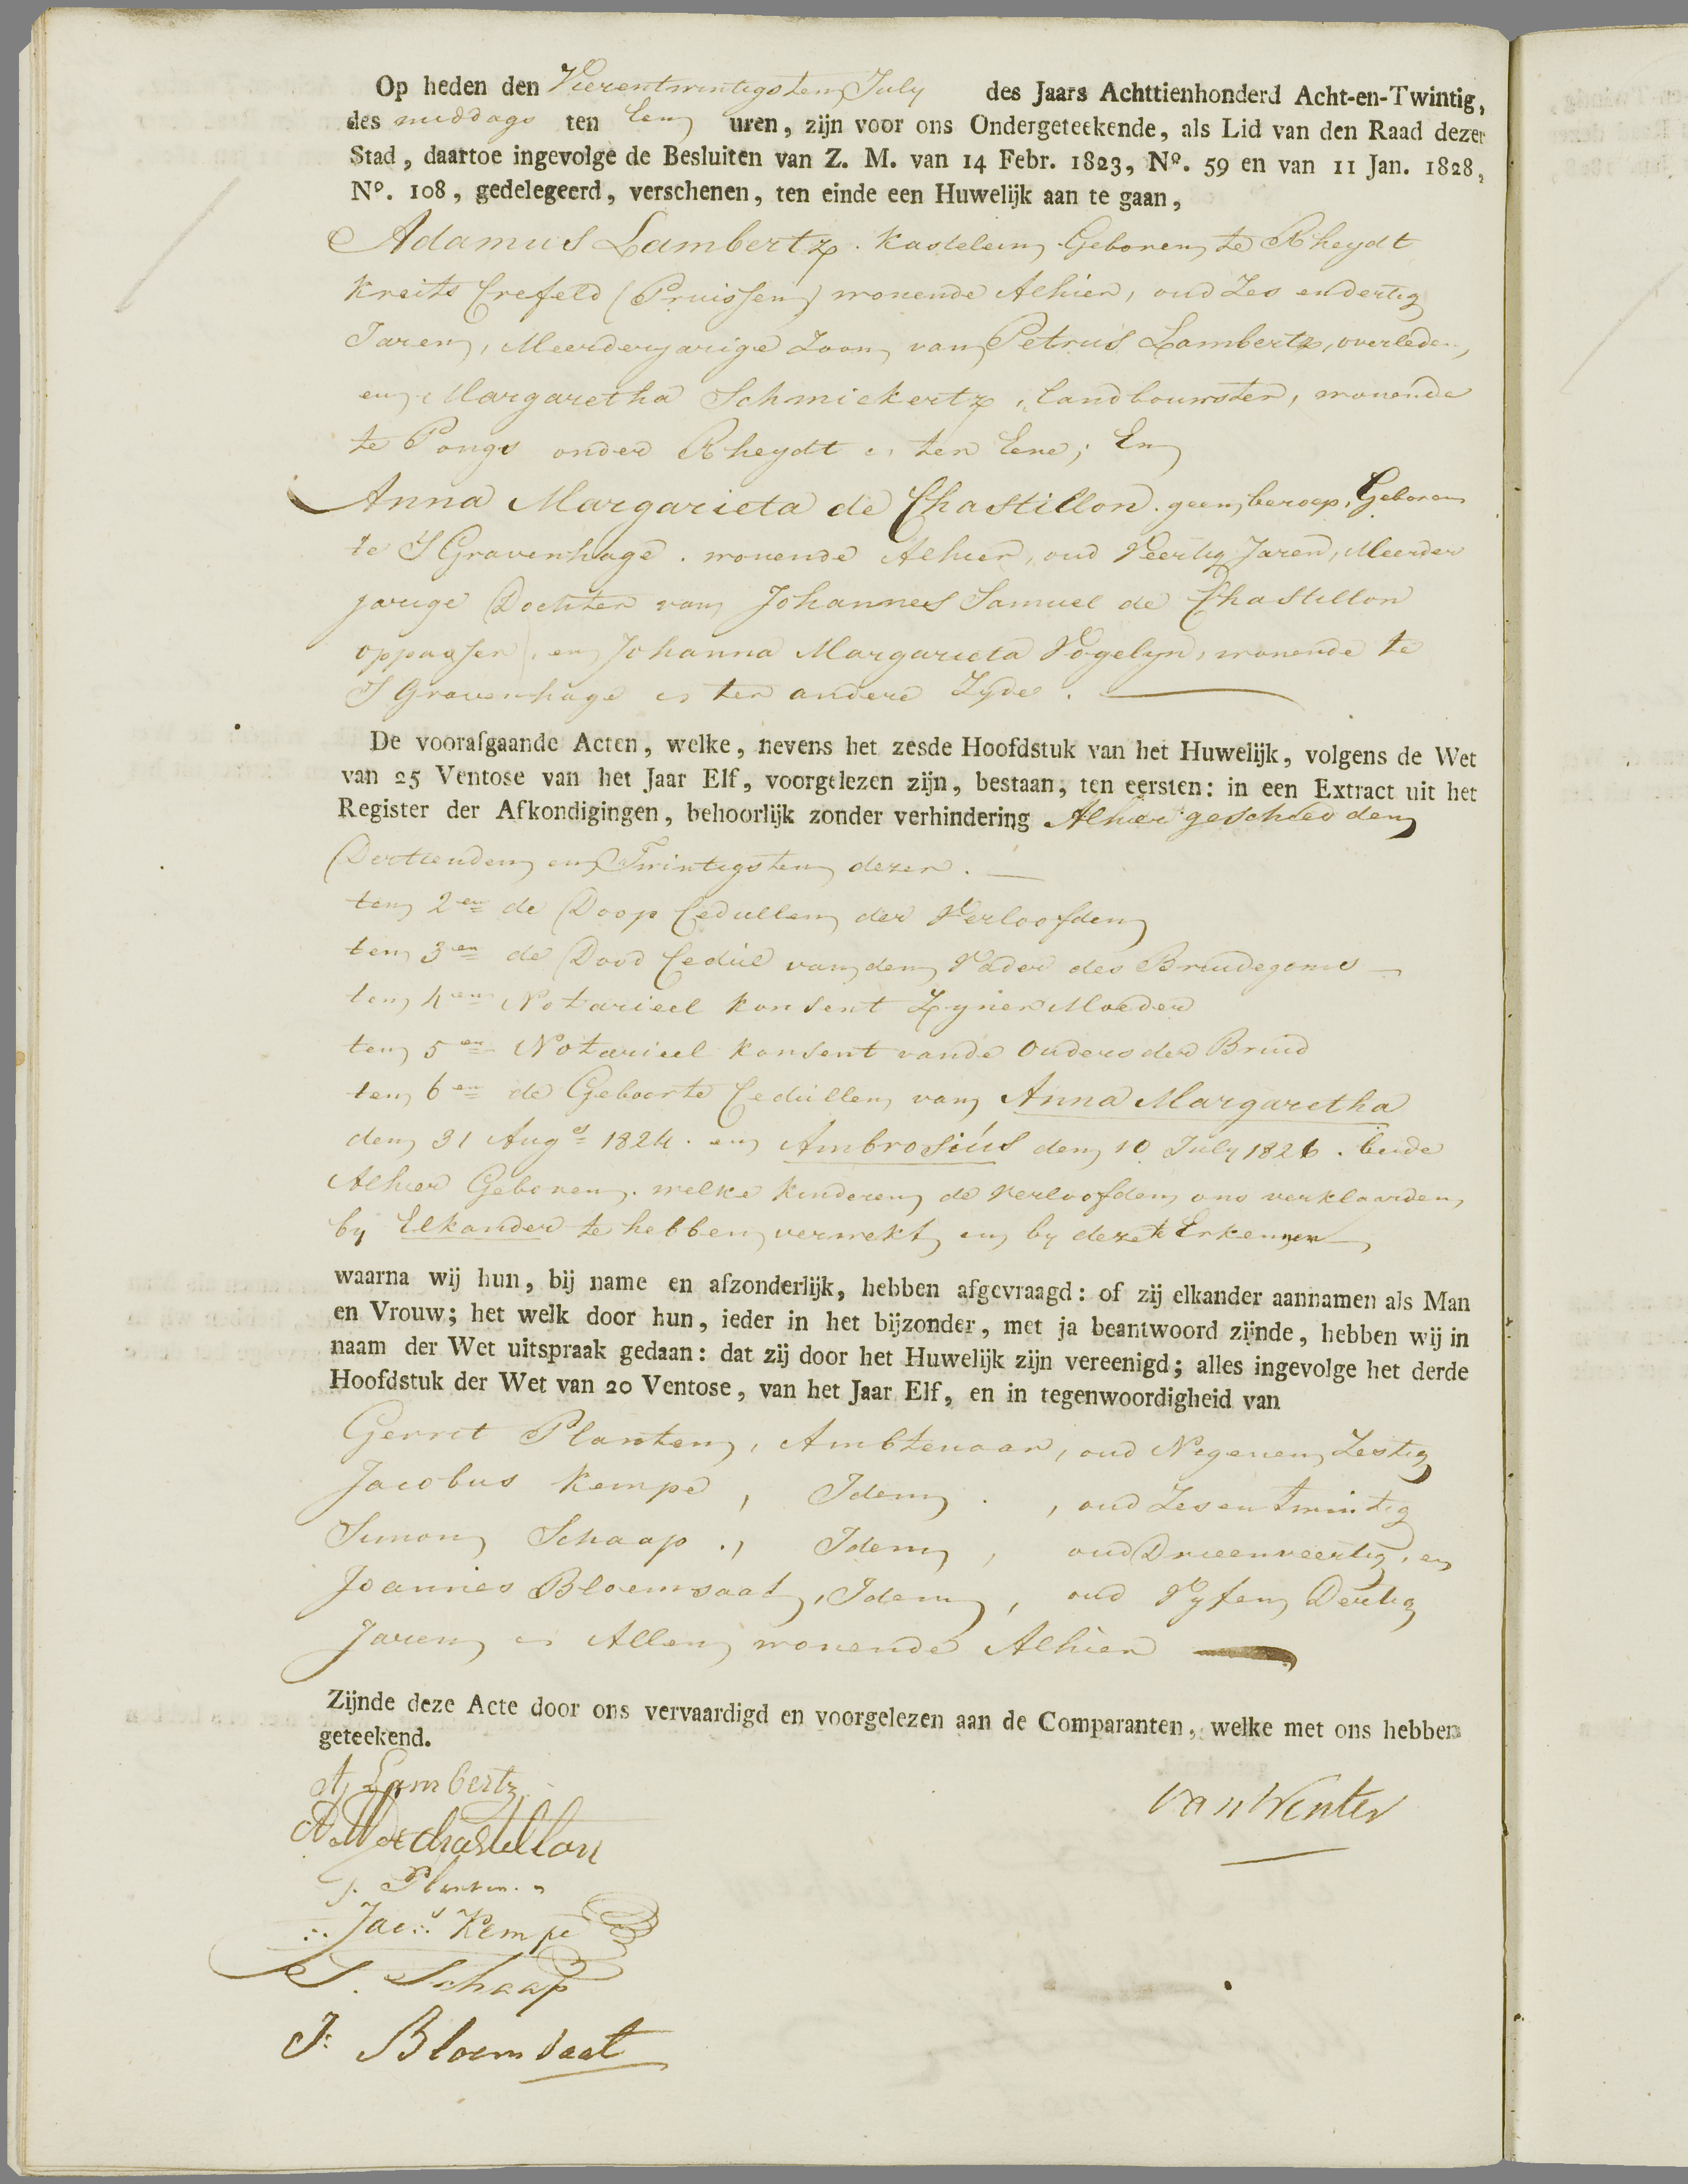 Op heden den Vierentwintigsten July des Jaars Achttienhonderd Acht-en-Twintig,
des middags ten Een uren, zijn voor ons Ondergeteekende, als Lid van den Raad dezer
Stad, daartoe ingevolge de Besluiten van Z. M. van 14 Febr. 1823, No. 59 en van 11 Jan. 1828,
No. 108, gedelegeerd, verschenen, ten einde een Huwelijk aan te gaan,
Adamus Lambertz. Kastelein, Geboren te Rheydt
Kreits Crefeld (Pruissen) wonende Alhier, oud Zes en dertig
Jaren, Meerderjarige Zoon van Petrus Lambertz, overleden,
en Margaretha Schmickertz, Landbouwster, wonende
te Pongs onder Rheydt is ten Eene; En
Anna Margarieta de Chastillon. geen beroep, Geboren
te S Gravenhage. wonende Alhier, oud Veertig Jaren, Meerder
jarige Dochter van Johannes Samuel de Chastillon
oppasser, en Johanna Margarieta Vogelyn, wonende te
S Gravenhage is ter andere Zyde.
De voorafgaande Acten, welke, nevens het zesde Hoofdstuk van het Huwelijk, volgens de Wet
van 25 Ventose van het Jaar Elf, voorgelezen zijn, bestaan, ten eersten: in een Extract uit het
Register der Afkondigingen, behoorlijk zonder verhindering Alhier geschied den
Dertienden en Twintigsten dezer.
ten 2en de Doop Cedullen der Verloofden
ten 3en de Dood Cedúl van den Vader des Bruidegoms
ten 4en Notarieel Konsent Zyner Moeder
ten 5en Notarieel Konsent van de Ouders der Bruid
ten 6en de Geboorte Cedúllen van Anna Margaretha
den 31 Augs 1824. en Ambrosiús den 10 July 1826. beide
Alhier Geboren. welke kinderen de Verloofden ons verklaarden,
by Elkander te hebben verwekt en by deze te Erkennen
waarna wij hun, bij name en afzonderlijk, hebben afgevraagd: of zij elkander aannamen als Man
en Vrouw; het welk door hun, ieder in het bijzonder, met ja beantwoord zijnde, hebben wij in
naam der Wet uitspraak gedaan: dat zij door het Huwelijk zijn vereenigd; alles ingevolge het derde
Hoofdstuk der Wet van 20 Ventose, van het Jaar Elf, en in tegenwoordigheid van
Gerrit Planten, Ambtenaar, oud Negen en Zestig
Jacobus Kempe, Idem, oud Zes en twintig
Simon Schaap., Idem, oud Drieenveertig, en
Joannes Bloemsaat, Idem, oud Vyf en Dertig
Jaren is Allen wonende Alhier
Zijnde deze Acte door ons vervaardigd en voorgelezen aan de Comparanten, welke met ons hebben
geteekend.
A Lambertz
van Winter
A M de chastillon
g. Planten
Jacs Kempe
S. Schaap
J: Bloemsaat